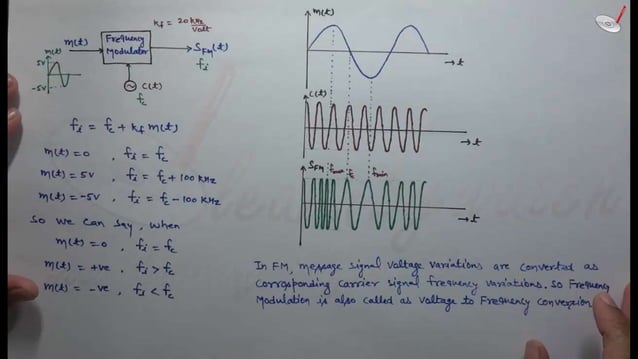 kf = 20 kHz/Volt
m(t)
Frequency
Modulator
SFM(t)
fi
m(t)
5V
-5V
c(t)
fc
fi = fc + kf m(t)
m(t) = 0 , fi = fc
m(t) = 5V , fi = fc + 100 kHz
m(t) = -5V , fi = fc - 100 kHz
So we can say, when
m(t) = 0 , fi = fc
m(t) = +ve , fi > fc
m(t) = -ve , fi < fc
m(t)
t
c(t)
t
SFM
fmax
fc
fmin
t
In FM, message signal voltage variations are converted as
corresponding carrier signal frequency variations. So Frequency
Modulation is also called as Voltage to Frequency Conversion